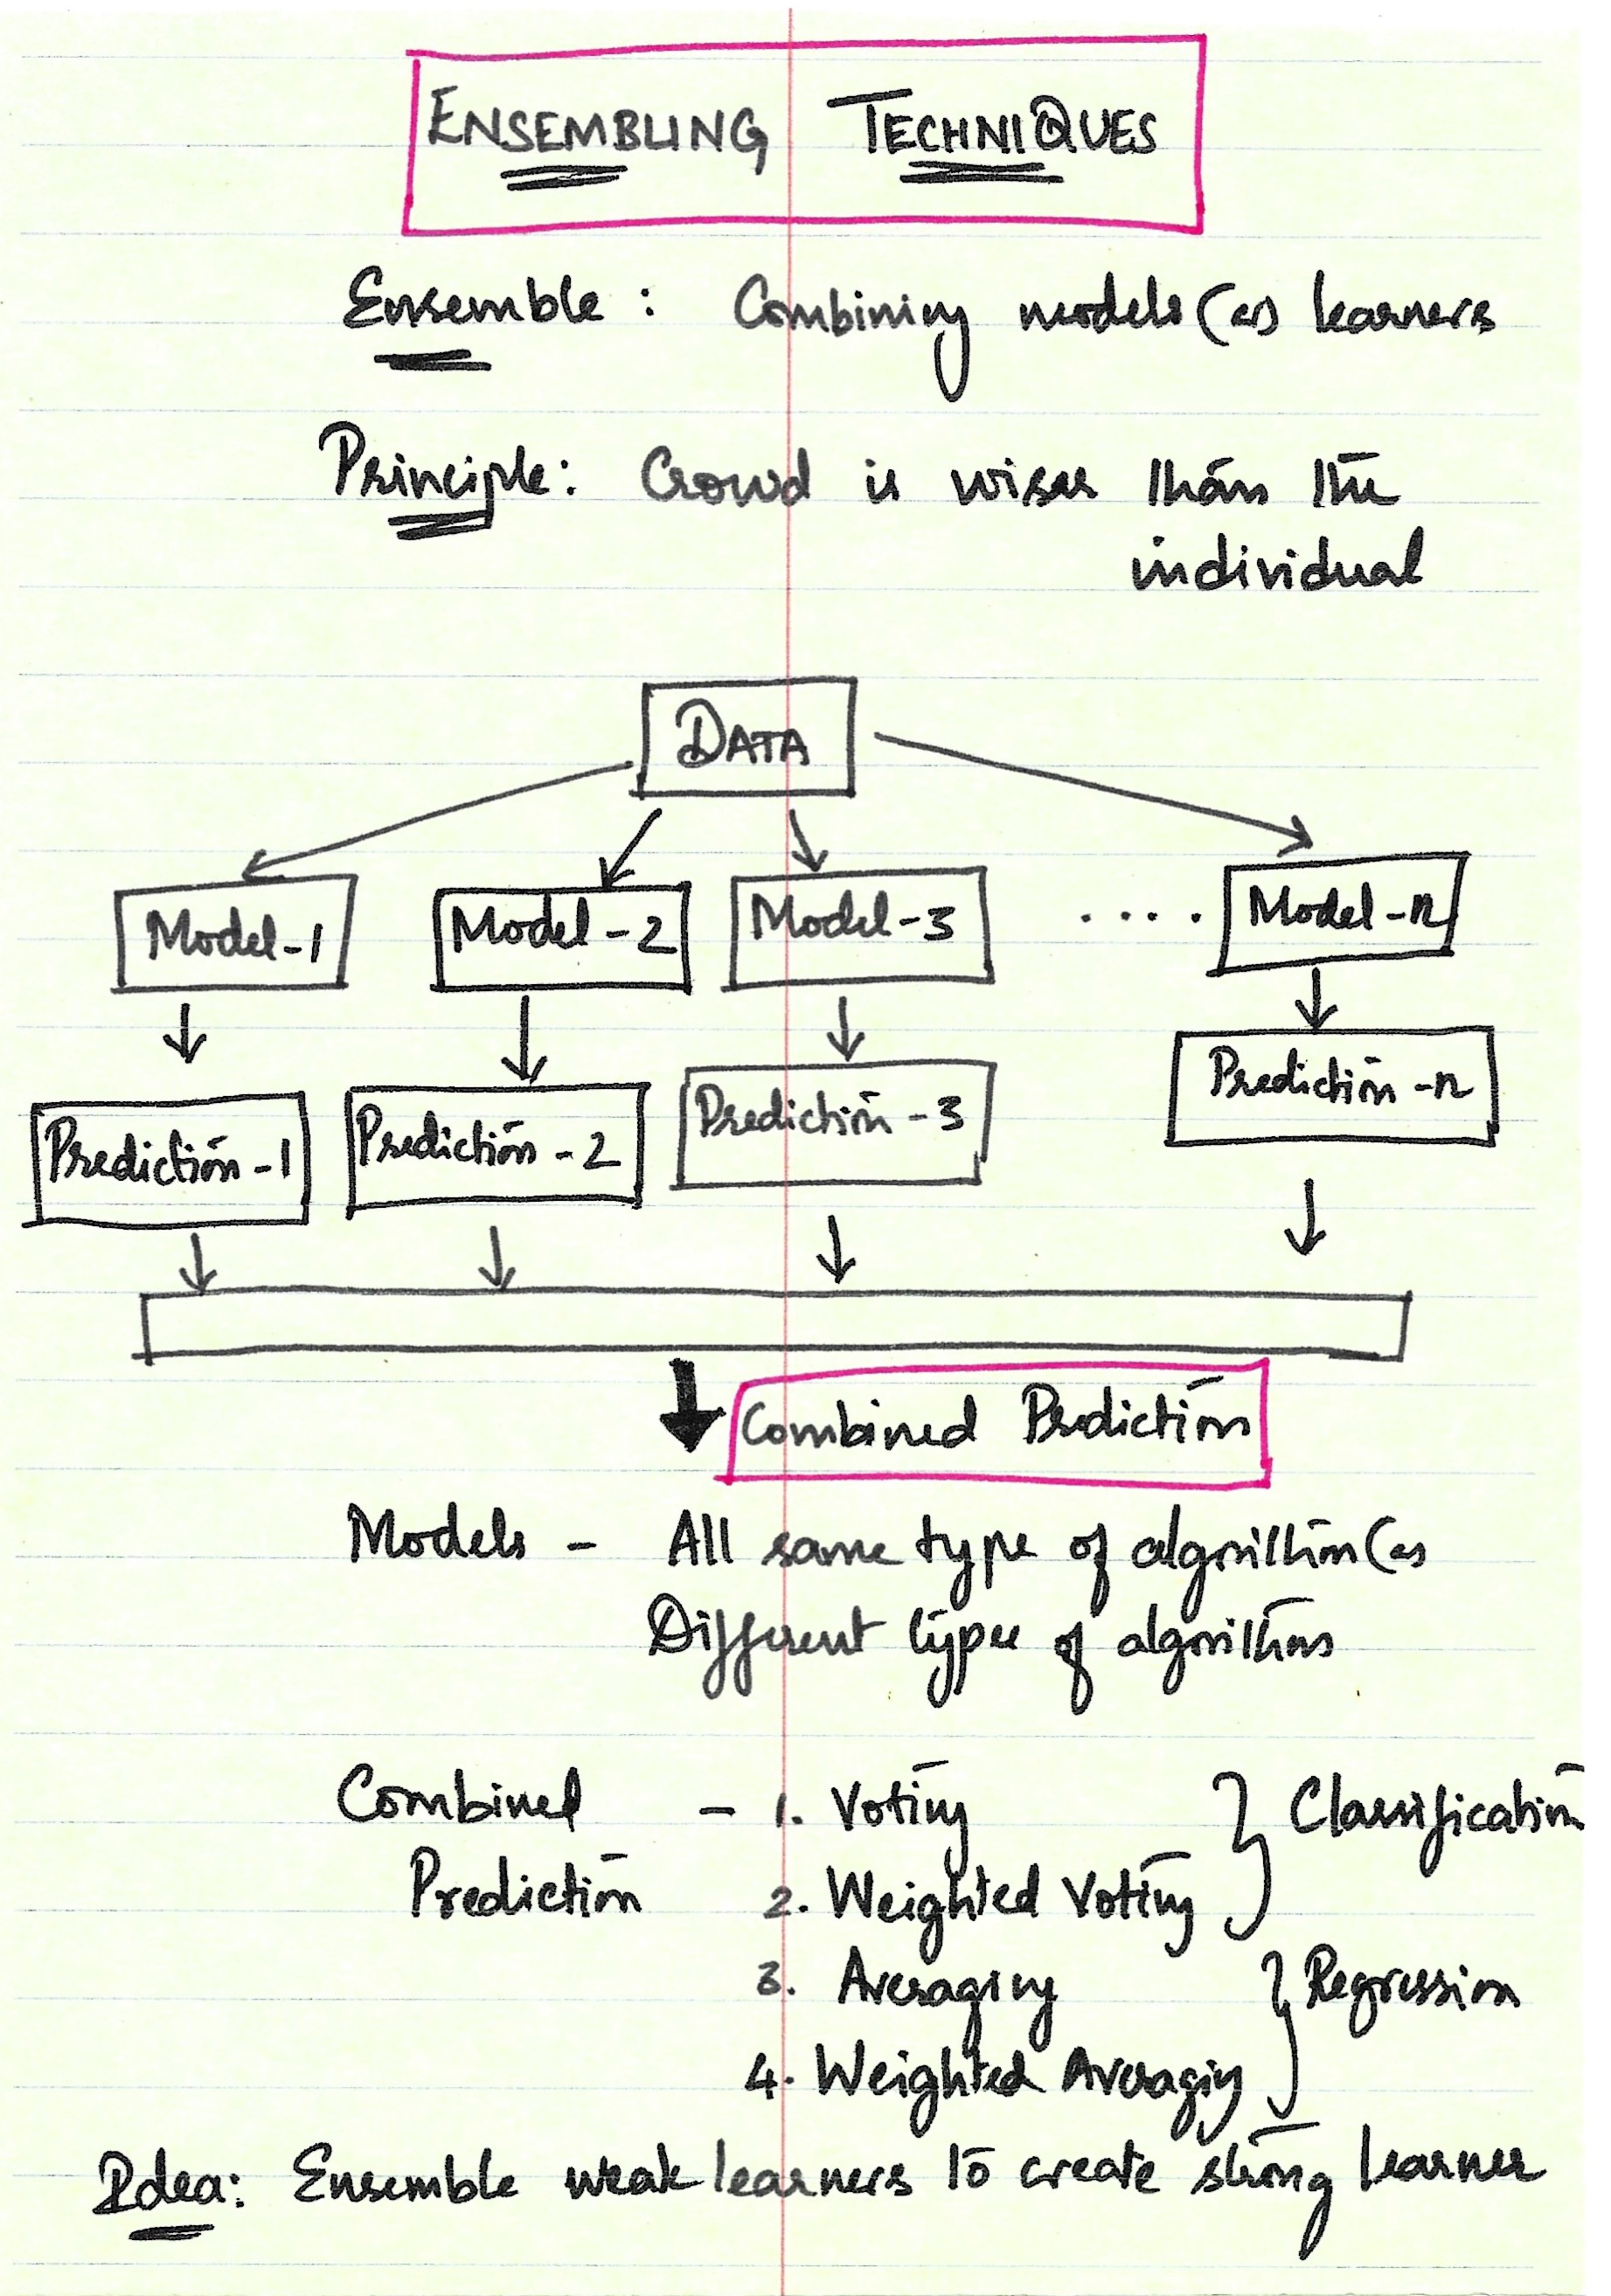 ENSEMBLING TECHNIQUES
Ensemble : Combining models (or) learners
Principle: Crowd is wiser than the
individual
DATA
Model-1 Model-2 Model-3 ..... Model-n
Prediction-1 Prediction-2 Prediction-3 Prediction-n
Combined Prediction
Models - All same type of algorithm (or
Different types of algorithms
Combined - 1. Voting } Classification
Prediction 2. Weighted Voting
3. Averaging } Regression
4. Weighted Averaging
Idea: Ensemble weak learners to create strong learner